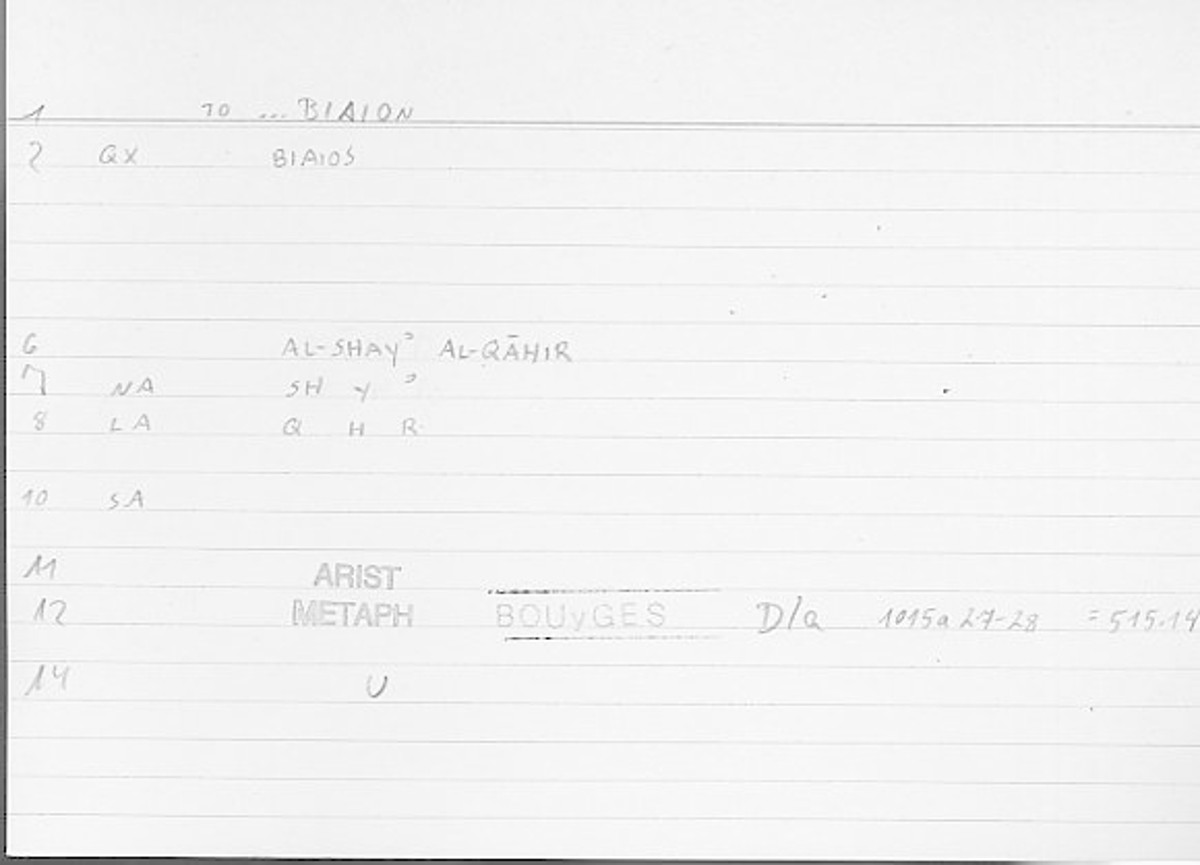 1 TO ... BIAION
2 QX BIAIOS
6 AL-SHAYʾ AL-QĀHIR
7 NA SH Y ʾ
8 LA Q H R
10 SA
11 ARIST
12 METAPH BOUyGES D/a 1015a 27-28 = 515.14
14 U